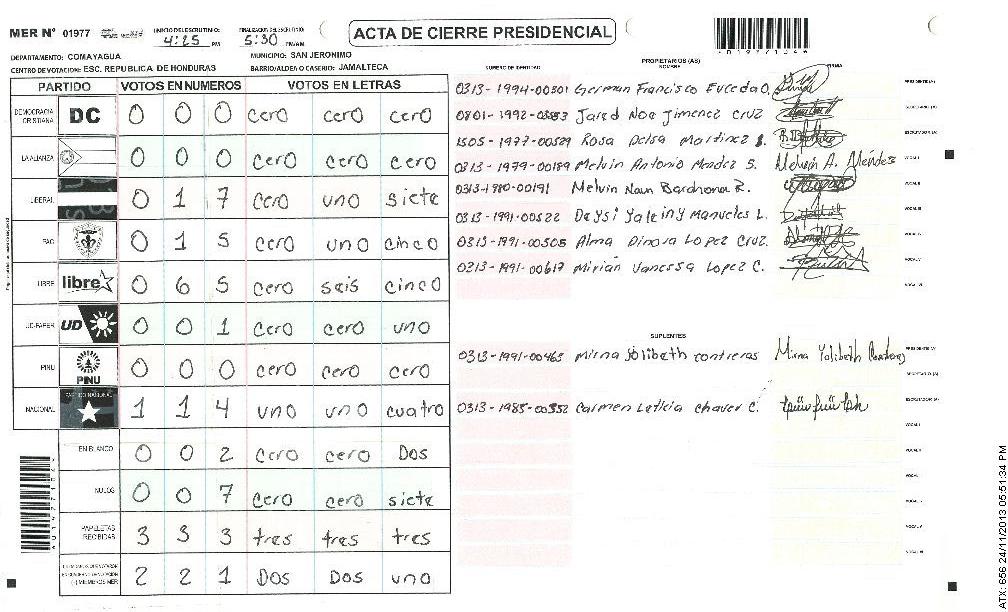 MER N° 01977 INICIO DEL ESCRUTINIO: 4:25 PM FINALIZACION DEL ESCRUTINIO: 5:30 PM/AM ACTA DE CIERRE PRESIDENCIAL
DEPARTAMENTO: COMAYAGUA MUNICIPIO: SAN JERONIMO
CENTRO DE VOTACION: ESC. REPUBLICA DE HONDURAS BARRIO/ALDEA O CASERIO: JAMALTECA
PARTIDO VOTOS EN NUMEROS VOTOS EN LETRAS
DEMOCRACIA CRISTIANA DC 0 0 0 cero cero cero
LA ALIANZA 0 0 0 cero cero cero
LIBERAL 0 1 7 cero uno siete
PAC 0 1 5 cero uno cinco
LIBRE libre 0 6 5 cero seis cinco
UD-FAPER UD 0 0 1 cero cero uno
PINU PINU 0 0 0 cero cero cero
NACIONAL PARTIDO NACIONAL 1 1 4 uno uno cuatro
EN BLANCO 0 0 2 cero cero Dos
NULOS 0 0 7 cero cero siete
PAPELETAS RECIBIDAS 3 3 3 tres tres tres
MIEMBROS MER 2 2 1 Dos Dos uno
PROPIETARIOS (AS)
NUMERO DE IDENTIDAD NOMBRE FIRMA
0313-1994-00301 German Francisco Euceda O. PRESIDENTE (A)
0801-1992-03553 Jared Noe Jimenez Cruz SECRETARIO (A)
1505-1977-00529 Rosa Delsa Martinez S. ESCRUTADOR (A)
0313-1979-00189 Melvin Antonio Mendez S. Melvin A. Méndez VOCAL I
0313-1980-00191 Melvin Naun Bardhona R. VOCAL II
0313-1991-00522 Deysi Yaleiny Manueles L. VOCAL III
0313-1991-00505 Alma Dinora Lopez Cruz. VOCAL IV
0313-1991-00617 Mirian Vanessa Lopez C. VOCAL V
VOCAL VI
SUPLENTES
0313-1991-00465 Mirna Jolibeth contreras Mirna Yolibeth Contreras PRESIDENTE (A)
0313-1985-00352 Carmen Leticia chavez C. ESCRUTADOR (A)
VOCAL I
VOCAL II
VOCAL V
VOCAL VI
ATX: 656 24/11/2013 05:51:34 PM